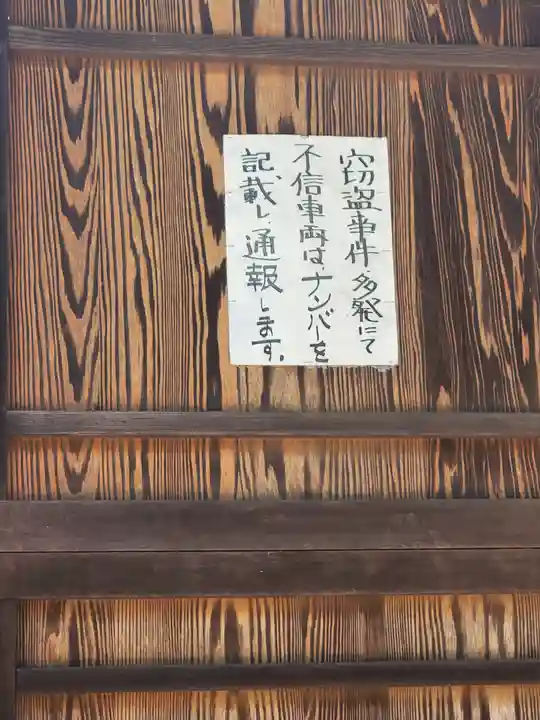 窃盗事件多発にて
不信車両は、ナンバーを
記載し、通報します。